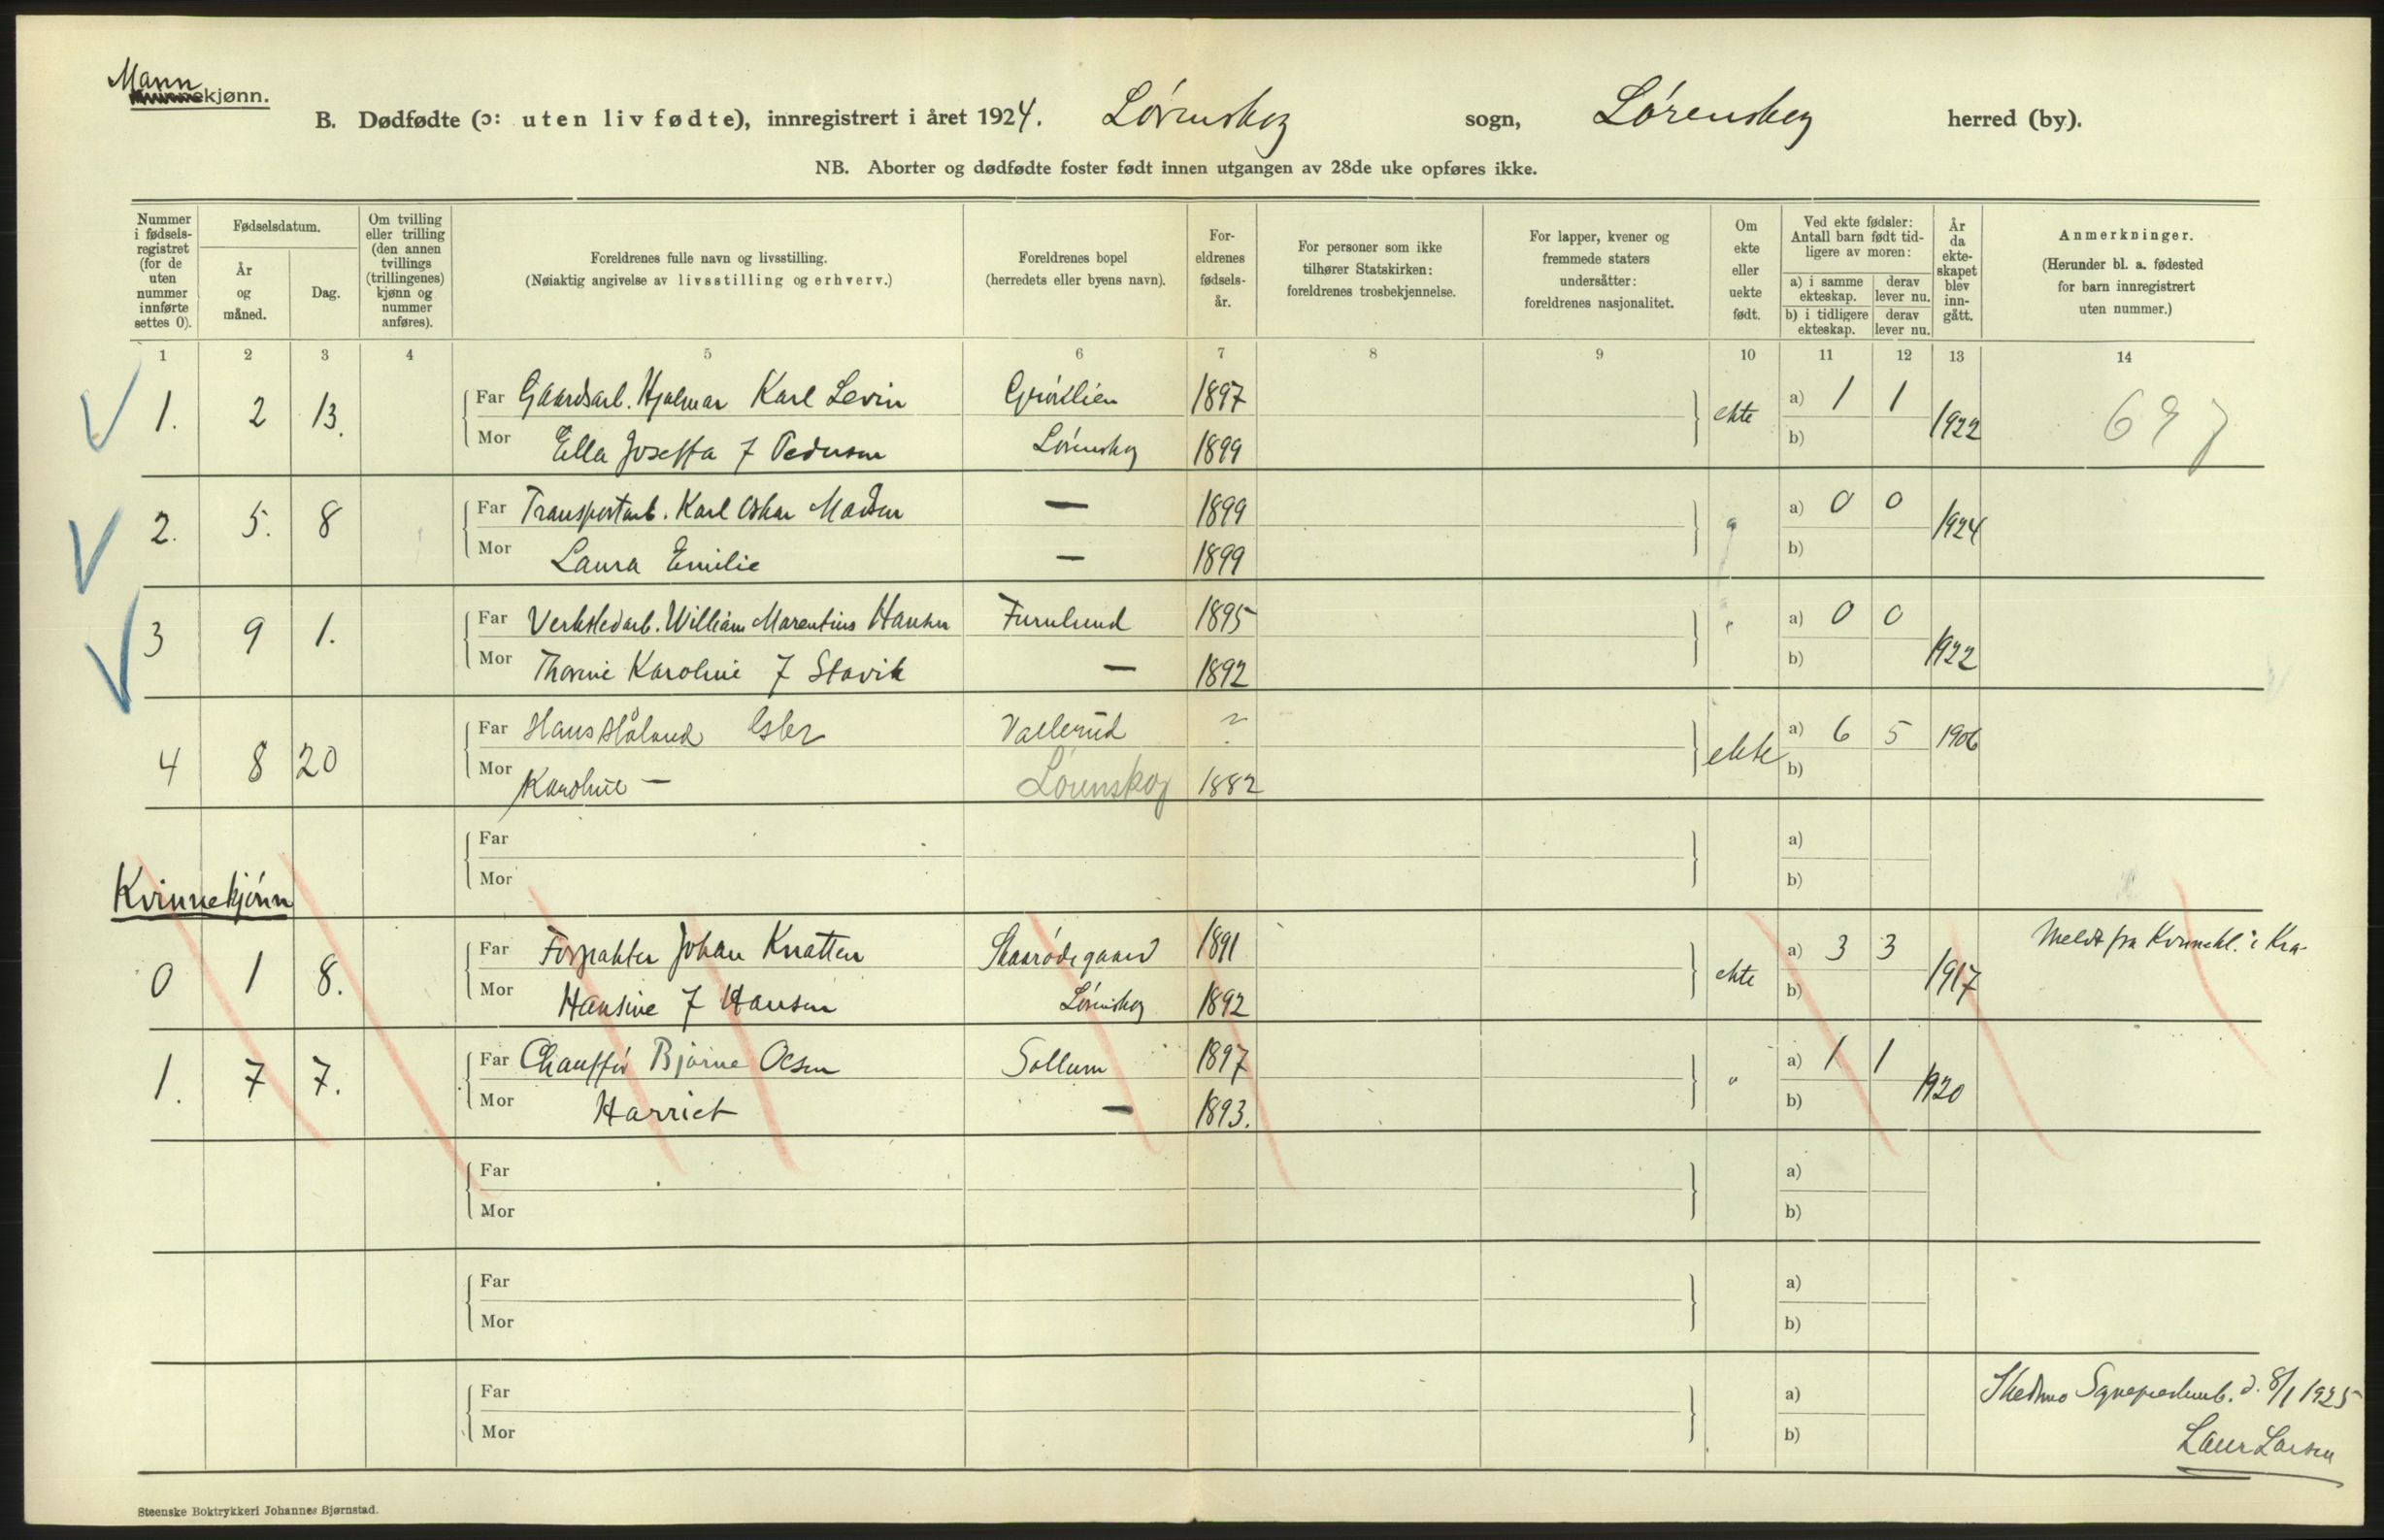 Mann
kjønn.
B. Dødfødte (ɔ: uten liv fødte), innregistrert i året 1924. Lørenskog sogn, Lørenskog herred (by).
NB. Aborter og dødfødte foster født innen utgangen av 28de uke opføres ikke.
Nummer i fødsels-registret (for de uten nummer innførte settes 0).
Fødselsdatum.
År og måned.
Dag.
Om tvilling eller trilling (den annen tvillings (trillingenes) kjønn og nummer anføres).
Foreldrenes fulle navn og livsstilling.
(Nøiaktig angivelse av livsstilling og erhverv.)
Foreldrenes bopel
(herredets eller byens navn).
For-eldrenes fødsels-år.
For personer som ikke tilhører Statskirken: foreldrenes trosbekjennelse.
For lapper, kvener og fremmede staters undersåtter: foreldrenes nasjonalitet.
Om ekte eller uekte født.
Ved ekte fødsler: Antall barn født tid-ligere av moren:
a) i samme ekteskap. derav lever nu.
b) i tidligere ekteskap. derav lever nu.
År da ekte-skapet blev inn-gått.
Anmerkninger.
(Herunder bl. a. fødested for barn innregistrert uten nummer.)
1 2 3 4 5 6 7 8 9 10 11 12 13 14
1. 2 13. Far Gaardsarb. Hjalmar Karl Levin 1897 ekte a) 1 1 1922
Mor Ella Joseffa f Pedersen Lørenskog 1899 b)
2. 5. 8 Far Transportarb. Karl Oskar Madsen — 1899 " a) 0 0 1924
Mor Laura Emilie — 1899 b)
3 9 1. Far Verkstedarb. William Marentius Hansen Furulund 1895 " a) 0 0 1922
Mor Karoline f Stavik — 1892 b)
4 8 20 Far Hans Håland Vallerud ? ekte a) 6 5 1906
Mor Karoline — Lørenskog 1882 b)
Far a)
Mor b)
Kvinnekjønn
0 1 8. Far Forpakter Johan Knatten 1891 ekte a) 3 3 1917 Meldt fra Kvinnekl. i Kra-
Mor Hansine f Hansen Lørenskog 1892 b)
1. 7 7. Far Chauffør Bjarne Olsen Sollum 1897 " a) 1 1 1920
Mor Harriet — 1893. b)
Far a)
Mor b)
Far a)
Mor b)
Far a) Skedsmo Sogneprestemb. d. 8/1 1925
Mor b) Laur Larsen
Steenske Boktrykkeri Johannes Bjørnstad.